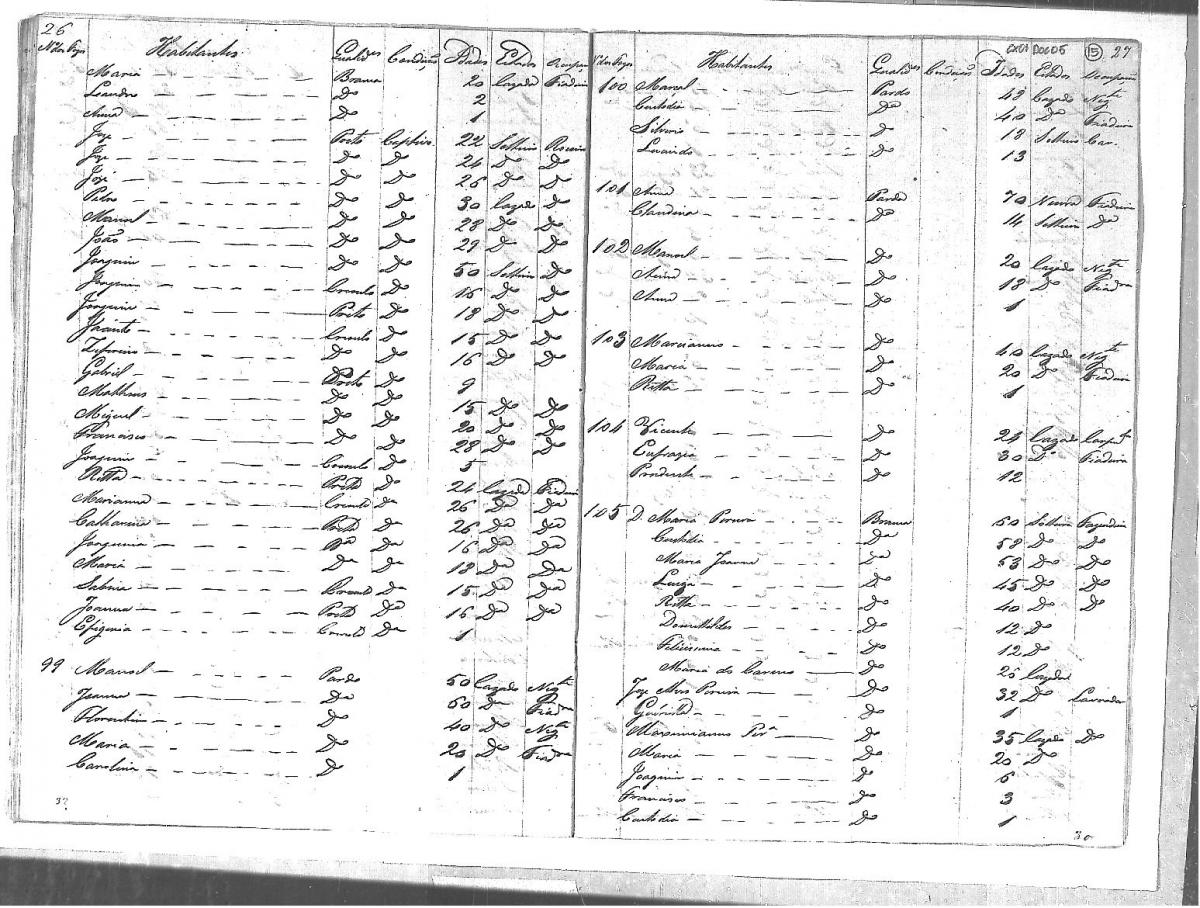 26
N. dos Fogos Habitantes Qualid.es Condiçõs Idades Estados Ocupaçõ
Maria Branca 20 Cazada Fiadeira
Leandro Do 2
Anna Do 1
Joze Preto Captivo 22 Solteiro Roceiro
Joze Do Do 24 Do Do
José Do Do 26 Do Do
Pedro Do Do 30 Cazado Do
Manoel Do Do 28 Do Do
João Do Do 29 Do Do
Joaquim Do Do 50 Solteiro Do
Joaquim Crioulo Do 16 Do Do
Joaquim Preto Do 18 Do Do
Jacinto Crioulo Do 15 Do Do
Zeferino Do Do 16 Do Do
Gabriel Preto Do 9
Matheus Do Do 15 Do Do
Miguel Do Do 20 Do Do
Francisco Do Do 28 Do Do
Joaquim Crioulo Do 5
Ritta Preta Da 24 Cazada Fiadeira
Marianna Crioula Da 26 Da Da
Catharina Preta Da 26 Da Da
Joaquina Da Da 16 Da Da
Maria Da Da 18 Da Da
Sabina Crioula Da 15 Da Da
Joanna Preta Da 16 Da Da
Efigenia Crioula Da 1
99 Manoel Pardo 50 Cazado Neg.te
Joanna Da 60 Da Fiad.ra
Florentino Do 40 Do Neg.te
Maria Do 20 Do Fiad.ra
Carolina Do 1
32
CX01 DOC05 15 27
N. dos Fogos Habitantes Qualid.es Condições Idades Estados Ocupaçõ
100 Manoel Pardo 48 Cazado Neg.te
Custodia Do 40 Do Fiadeira
Silverio Do 18 Solteiro Car.
13
101 Anna Parda 70 Viuva Fiadeira
Claudina Do 14 Solteira Da
102 Manoel Do 20 Cazado Neg.te
Anna Do 18 Do Fiad.ra
Anna Do 1
103 Marcianno Do 40 Cazado Neg.te
Maria Do 20 Do Fiadeira
Ritta Do 1
104 Vicente Do 24 Cazado Carpint.
Eufrazia Do 30 Do Fiadeira
Prudente Do 12
105 D. Maria Pereira Branca 60 Solteira Fazendeira
Custodia Da 58 Do Do
Maria Joanna Da 53 Do Do
Luiza Do 45 Do Do
Ritta Do 40 Do Do
Donatildes Do 12 Do
Felicissima Do 12 Do
Maria do Carmo Do 26 Cazada
Joze Mes Pereira Do 32 Do Lavrador
Do 1
Maximianno Per.a Do 35 Cazado Do
Maria Do 20 Do
Joaquim Do 6
Francisco Do 3
Custodia Do 1
30